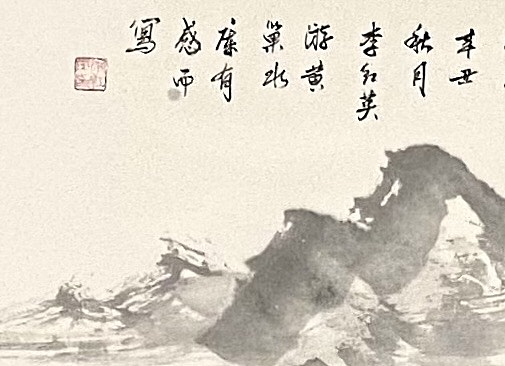 辛丑
秋月
李红英
游黄
巢水
库有
感而
寫